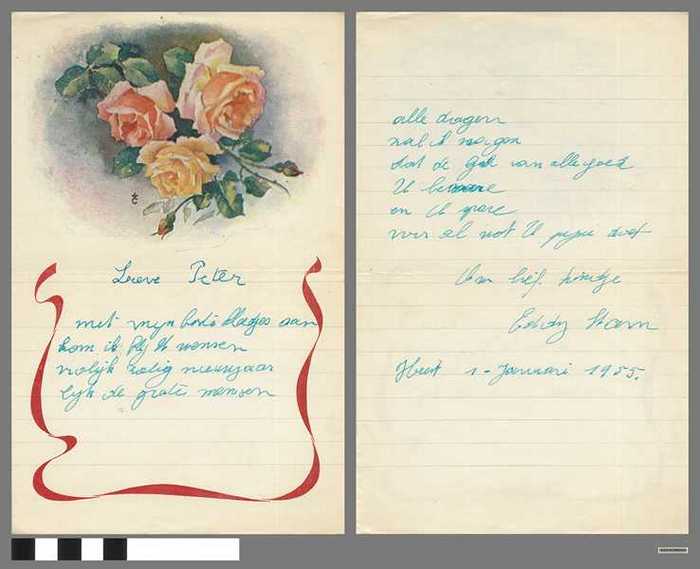 Lieve Peter
met mijn beste kladjes aan
kom ik bij U wensen
vrolijk zalig nieuwjaar
lijk de grote mensen
alle dragen
wat ik
dat de God van alle goed
U beware
en U spare
voor al wat U doet
Uw lief. kindje
Eddy
Heist 1 - Januari 1955.